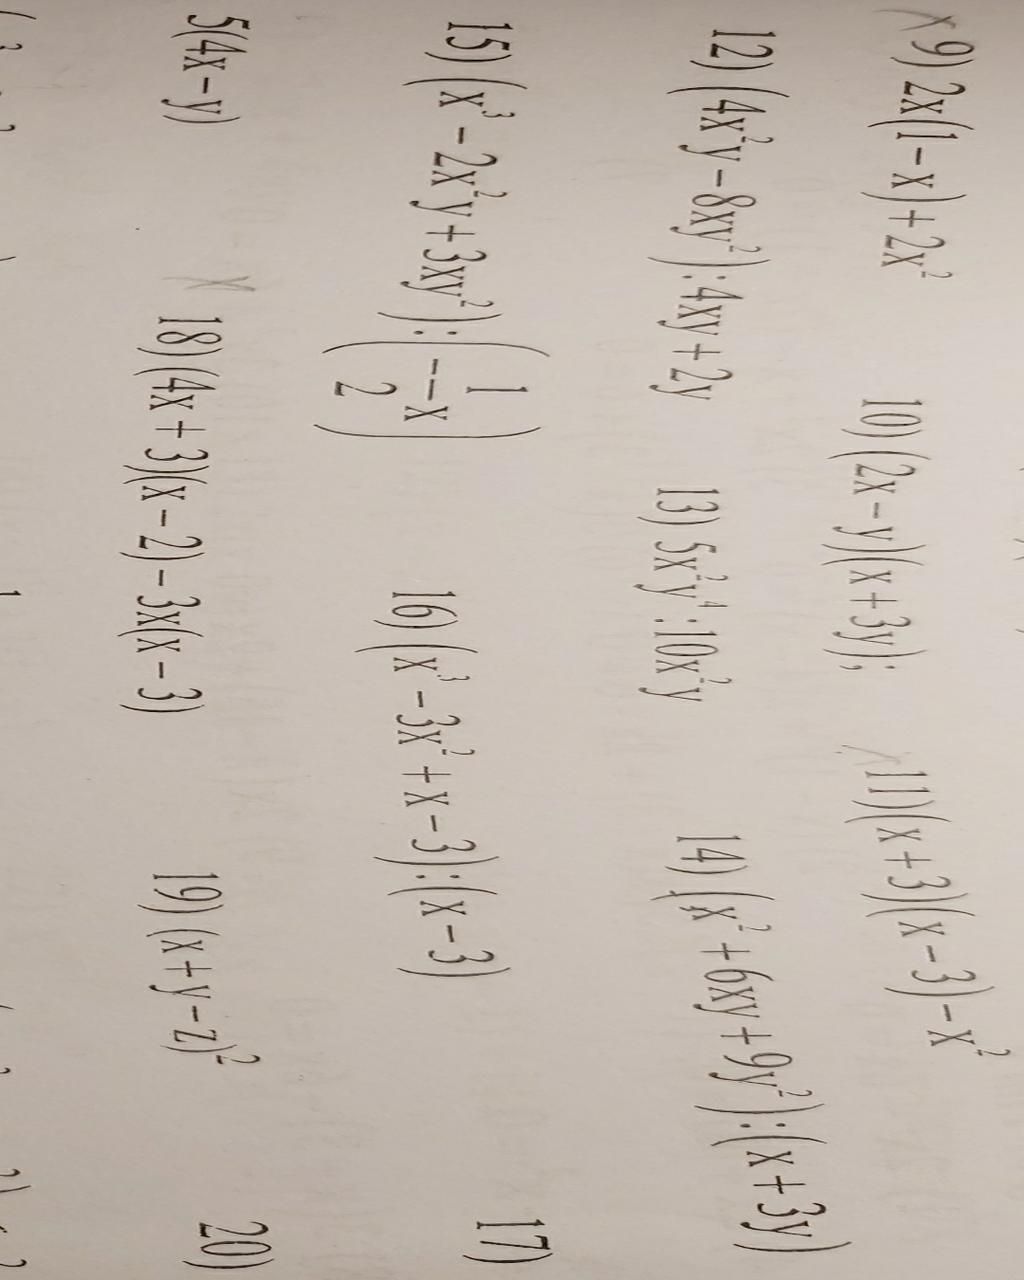 9) 2x(1 − x) + 2x² 10) (2x − y)(x + 3y); 11) (x + 3)(x − 3) − x²
12) (4x²y − 8xy²) : 4xy + 2y 13) 5x²y⁴ : 10x²y 14) (x² + 6xy + 9y²) : (x + 3y)
15) (x³ − 2x²y + 3xy²) : (−1/2 x) 16) (x³ − 3x² + x − 3) : (x − 3) 17)
5(4x − y) 18) (4x + 3)(x − 2) − 3x(x − 3) 19) (x + y − z)² 20)